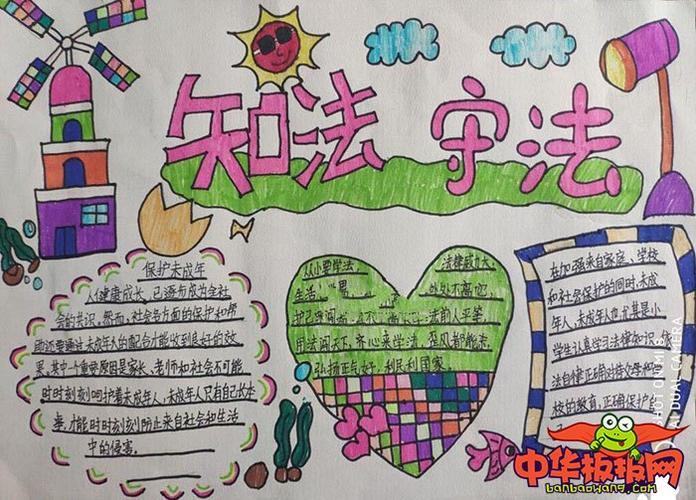 知法 守法
保护未成年
人健康成长,已逐步成为全社
会的共识。然而,社会各方面的保护和帮
助还要通过未成年人的配合才能收到良好的效
果,其中一个重要原因是家长、老师和社会不可能
时时刻刻呵护着未成年人,未成年人只有自己长本
事,才能时时刻刻防止来自社会和生活
中的侵害。
从小要学法, 法律威力大
生活 处处不离它
护己 法前人平等
用法闯天下。齐心来学法,
弘扬正气好,利民利国家。
在加强来自家庭、学校
和社会保护的同时,未成
年人,未成年人尤其是小
学生认真学习法律知识
法自律正确对待父母和
校的教育,正确保护
SHOT ON MI 5
AI DUAL CAMERA
中华板报网
banbaowang.com